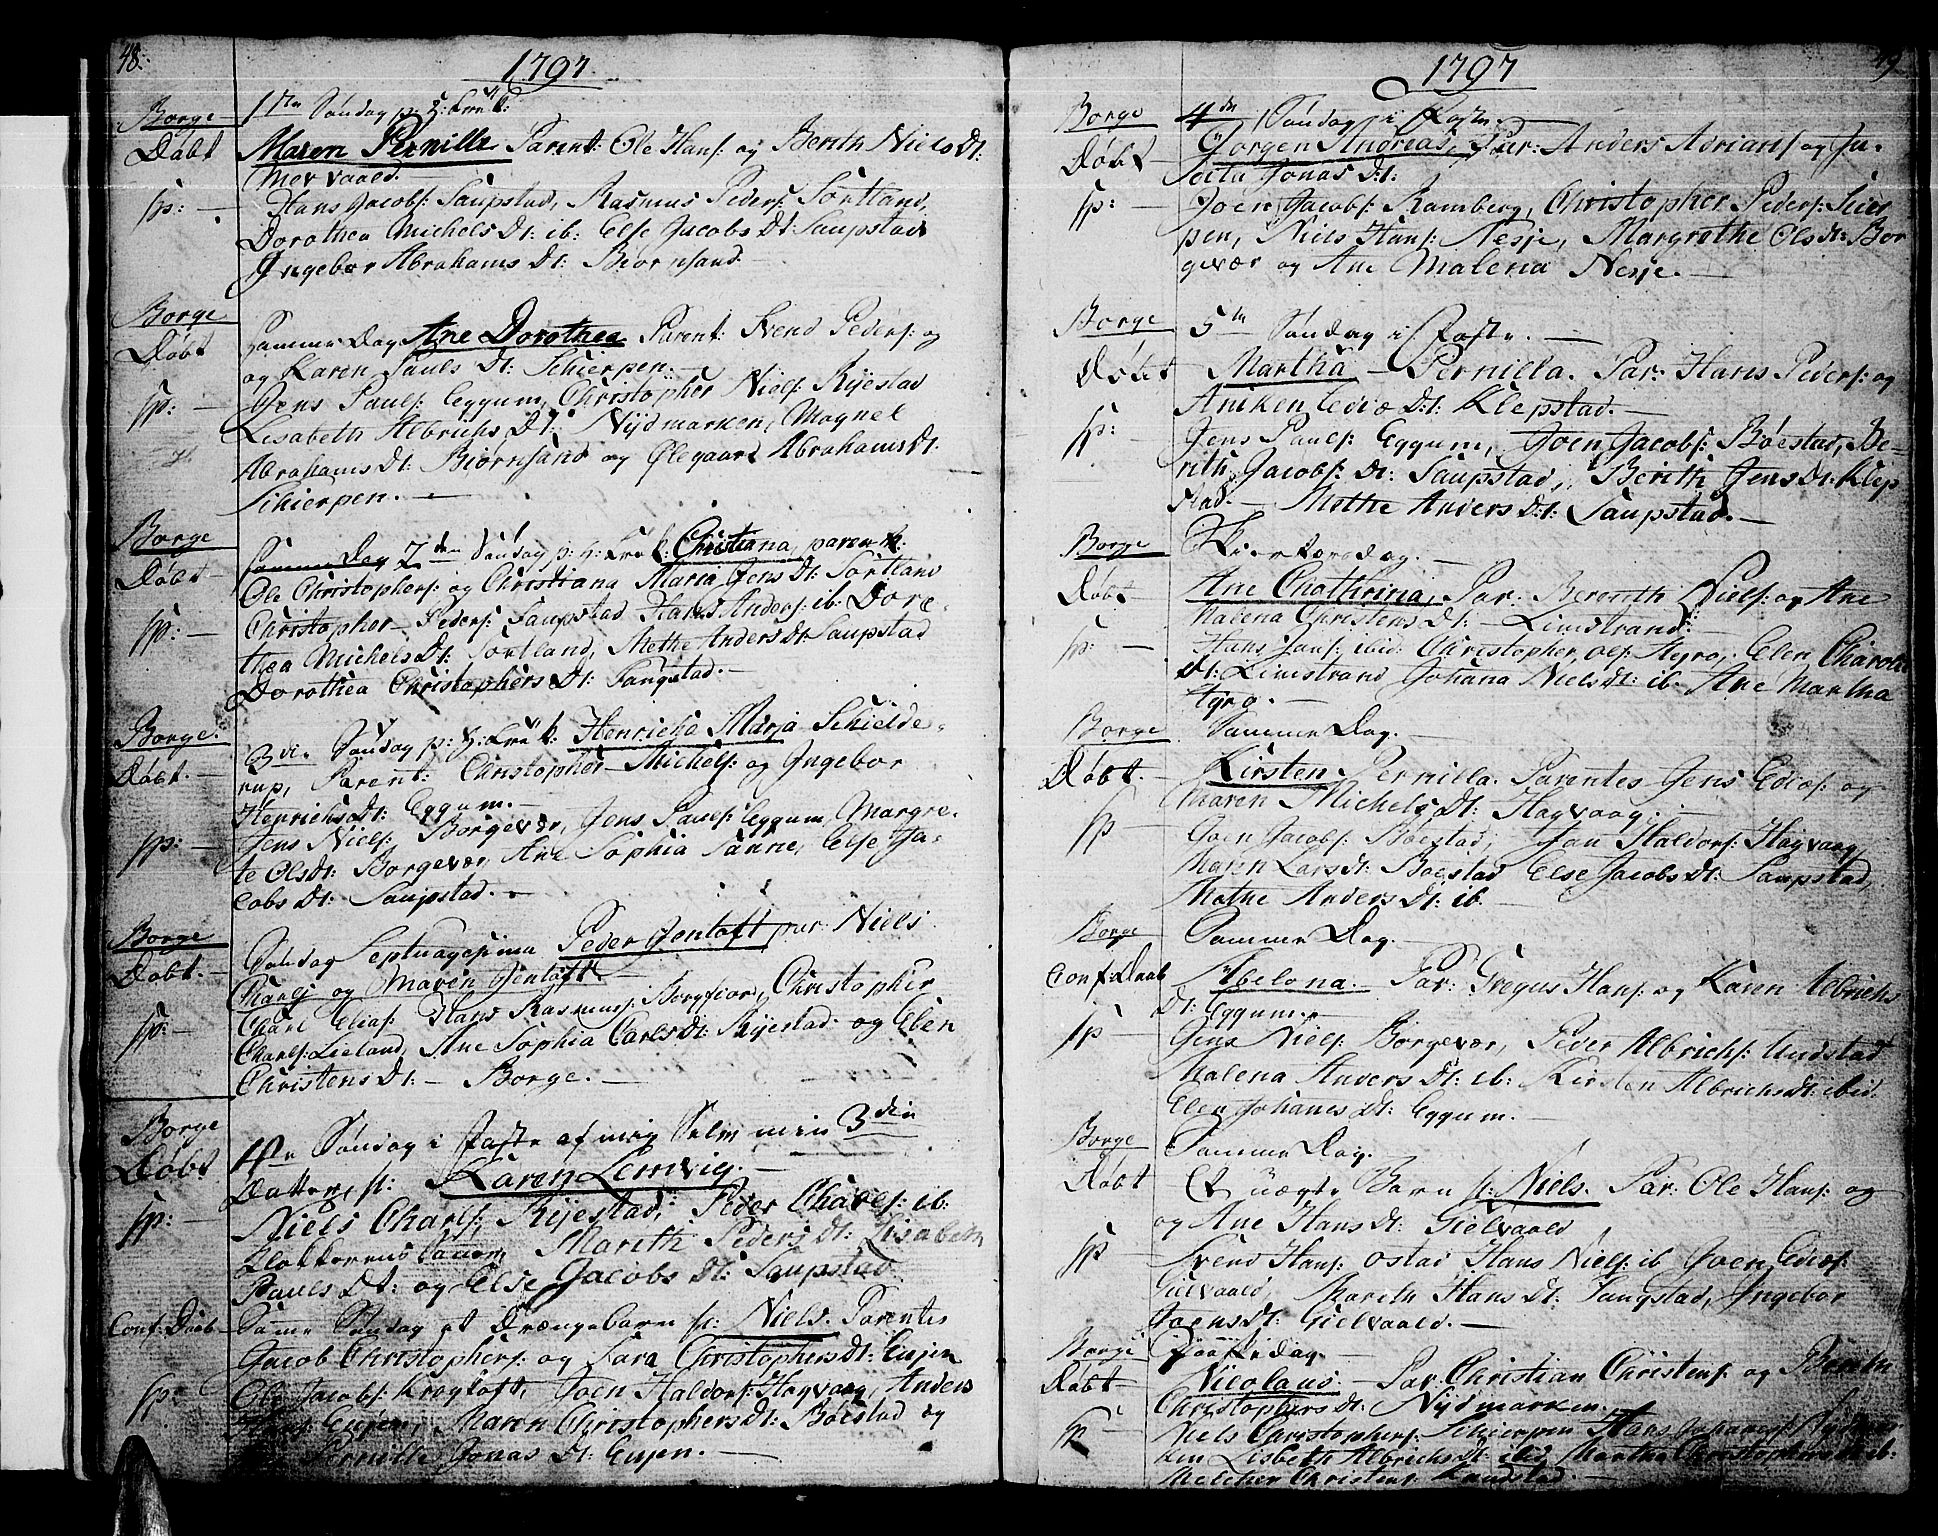 48.
1797
Borge
1ste Søndag p: H: Tre K:
Døbt
Maren Pernille Parent: Ole Hans: og Berith Niels Dt:
Mervaald.
sp: Hans Jacobs: Saupstad, Rasmus Peders: Sortland,
Dorothea Michels Dt: ib: Else Jacobs Dt: Saupstad
Ingebor Abrahams Dt: Biørnsand
Borge
Døbt
Samme Dag Ane Dorothea Parent: Svend Peders: og
og Karen Pauls Dt: Schierpen.
sp: Jens Pauls: Eggum, Christopher Niels: Rijestad
Lisabeth Albrichs Dt: Nijdmarken, Magnel
Abrahams Dt: Biørnsand og Ølegaard Abrahams Dt:
Schierpen.
Borge
Døbt
Samme Dag 2den Søndag p: H: Tre K: Christiana, parent:
Ole Christophers: og Christiana Maria Jens Dt: Sortland
sp: Christopher Peders: Saupstad Hans Anders: ib: Doro-
thea Michels Dt: Sortland, Methe Anders Dt: Saupstad
Dorothea Christophers Dt: Sangstad.
Borge.
Døbt.
3die Søndag p: H: Tre K: Henricha Maria Schielde-
rup, Parent: Christopher Michels: og Ingebor
Henrichs Dt: Eggum.
sp: Jens Niels: Borgevær, Jens Pauls: Eggum, Margre-
te Ols Dt: Borgevær, Ane Sophia Sanne, Else Ja-
cobs Dt: Saupstad.
Borge
Døbt.
Søndag Septuagesima Peder Jentoft par: Niels
Charls: og Maren Jentoft.
sp: Charl Elias: Hans Rasmus: Borgfior, Christopher
Charls: Lieland, Ane Sophia Carls Dt: Rijestad og Elen
Christens Dt: Borge.
Borge
Døbt
1ste Søndag i Faste af mig Selv min 3die
Datter, n: Karen Lemvig.
sp: Niels Charls: Rijestad, Peder Charls: ib:
Klokkerens Marith Peders Dt: Lisabeth
Pauls Dt: og Else Jacobs Dt: Saupstad
Conf: Daab
Samme Søndag et Drængebarn n: Niels. Parentes
Jacob Christophers: og Sara Christophers Dt: Eujen
sp: Ole Jacobs: Krogtoft, Joen Haldors: Hagvaag, Anders
Hans: Eujen, Maren Christophers Dt: Bøestad og
Pernille Jonas Dt: Eujen.
49
1797
Borge
4de Søndag i Faste.
Døbt
Jørgen Andreas, Par: Anders Adrians: og Ju-
ditu Jonas Dt:
sp: Joen Jacobs: Ramberg, Christopher Peders: Skier
pen, Niels Hans: Nesje, Margrethe Ols Dt: Bor
gevær og Ane Malena Nesje.
Borge
5te Søndag i Faste.
Døbt
Martha Pernilla. Par: Hans Peders: og
Aniken Edis Dt: Klepstad.
sp: Jens Pauls: Eggum, Joen Jacobs: Bøestad, Be-
rith Jacobs: Dt: Saupstad, Berith Jens Dt: Klep
stad. Methe Anders Dt: Saupstad.
Borge
Skiertorsdag.
Døbt
Ane Chathrina, Par: Berenth Niels: og Ane
Malena Christens Dt: Limstrand.
sp: Hans Jans: ibid: Christopher Ols: Hyro, Elen Charols
Dt: Limstrand Johana Niels Dt: ib. Ane Martha
Hyro.
Borge
Samme Dag.
Døbt.
Kirsten Pernilla. Parentes Jens Edis: og
Maren Michels Dt: Hagvaag.
sp Joen Jacobs: Bøestad, Jon Haldors: Hagvaag
Maren Lars Dt: Bøestad Else Jacobs Dt: Saupstad,
Methe Anders Dt: ib.
Borge
Samme Dag.
Conf: Daab
Abelona. Par: Gregus Hans: og Karen Albrichs
Dt: Eggum.
sp Jens Niels: Borgevær, Peder Albrichs: Undstad
Malena Anders Dt: ib: Kirsten Albrichs Dt: ibid.
Elen Johanes Dt: Eggum.
Borge
Samme Dag.
Døbt
Et uægte Barn n: Niels. Par: Ole Hans: og
og Ane Hans Dt: Gielvaald
sp Svend Hans: Ostad Hans Niels: ib Joen Edis:
Gielvaald, Marith Hans Dt: Sangstad, Ingebor
Joens Dt: Gielvaald.
Borge
Paaskedag.
Døbt
Nicolaus Par: Christian Christens: og Berith
Christophers Dt: Nijdmarken.
sp Niels Christophers: Schierpen Hans Johanes: Nijdmar
ken Lisbeth Albrichs Dt: ibid Martha Christophers Dt: ib:
Melcher Christens: Sandstad.